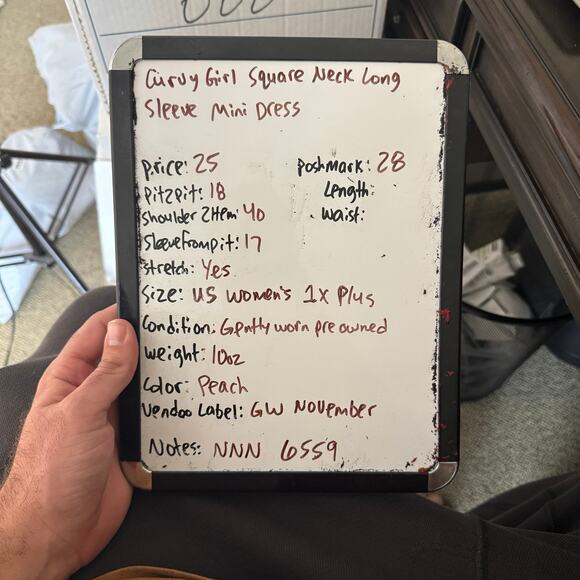 Curvy Girl Square Neck Long
Sleeve Mini Dress
price: 25
poshmark: 28
pit2pit: 18
Length:
shoulder 2Hem: 40
waist:
sleevefrompit: 17
stretch: Yes
Size: US women's 1x Plus
Condition: Gently worn pre owned
weight: 10oz
Color: Peach
Vendoo Label: GW November
Notes: NNN 6559